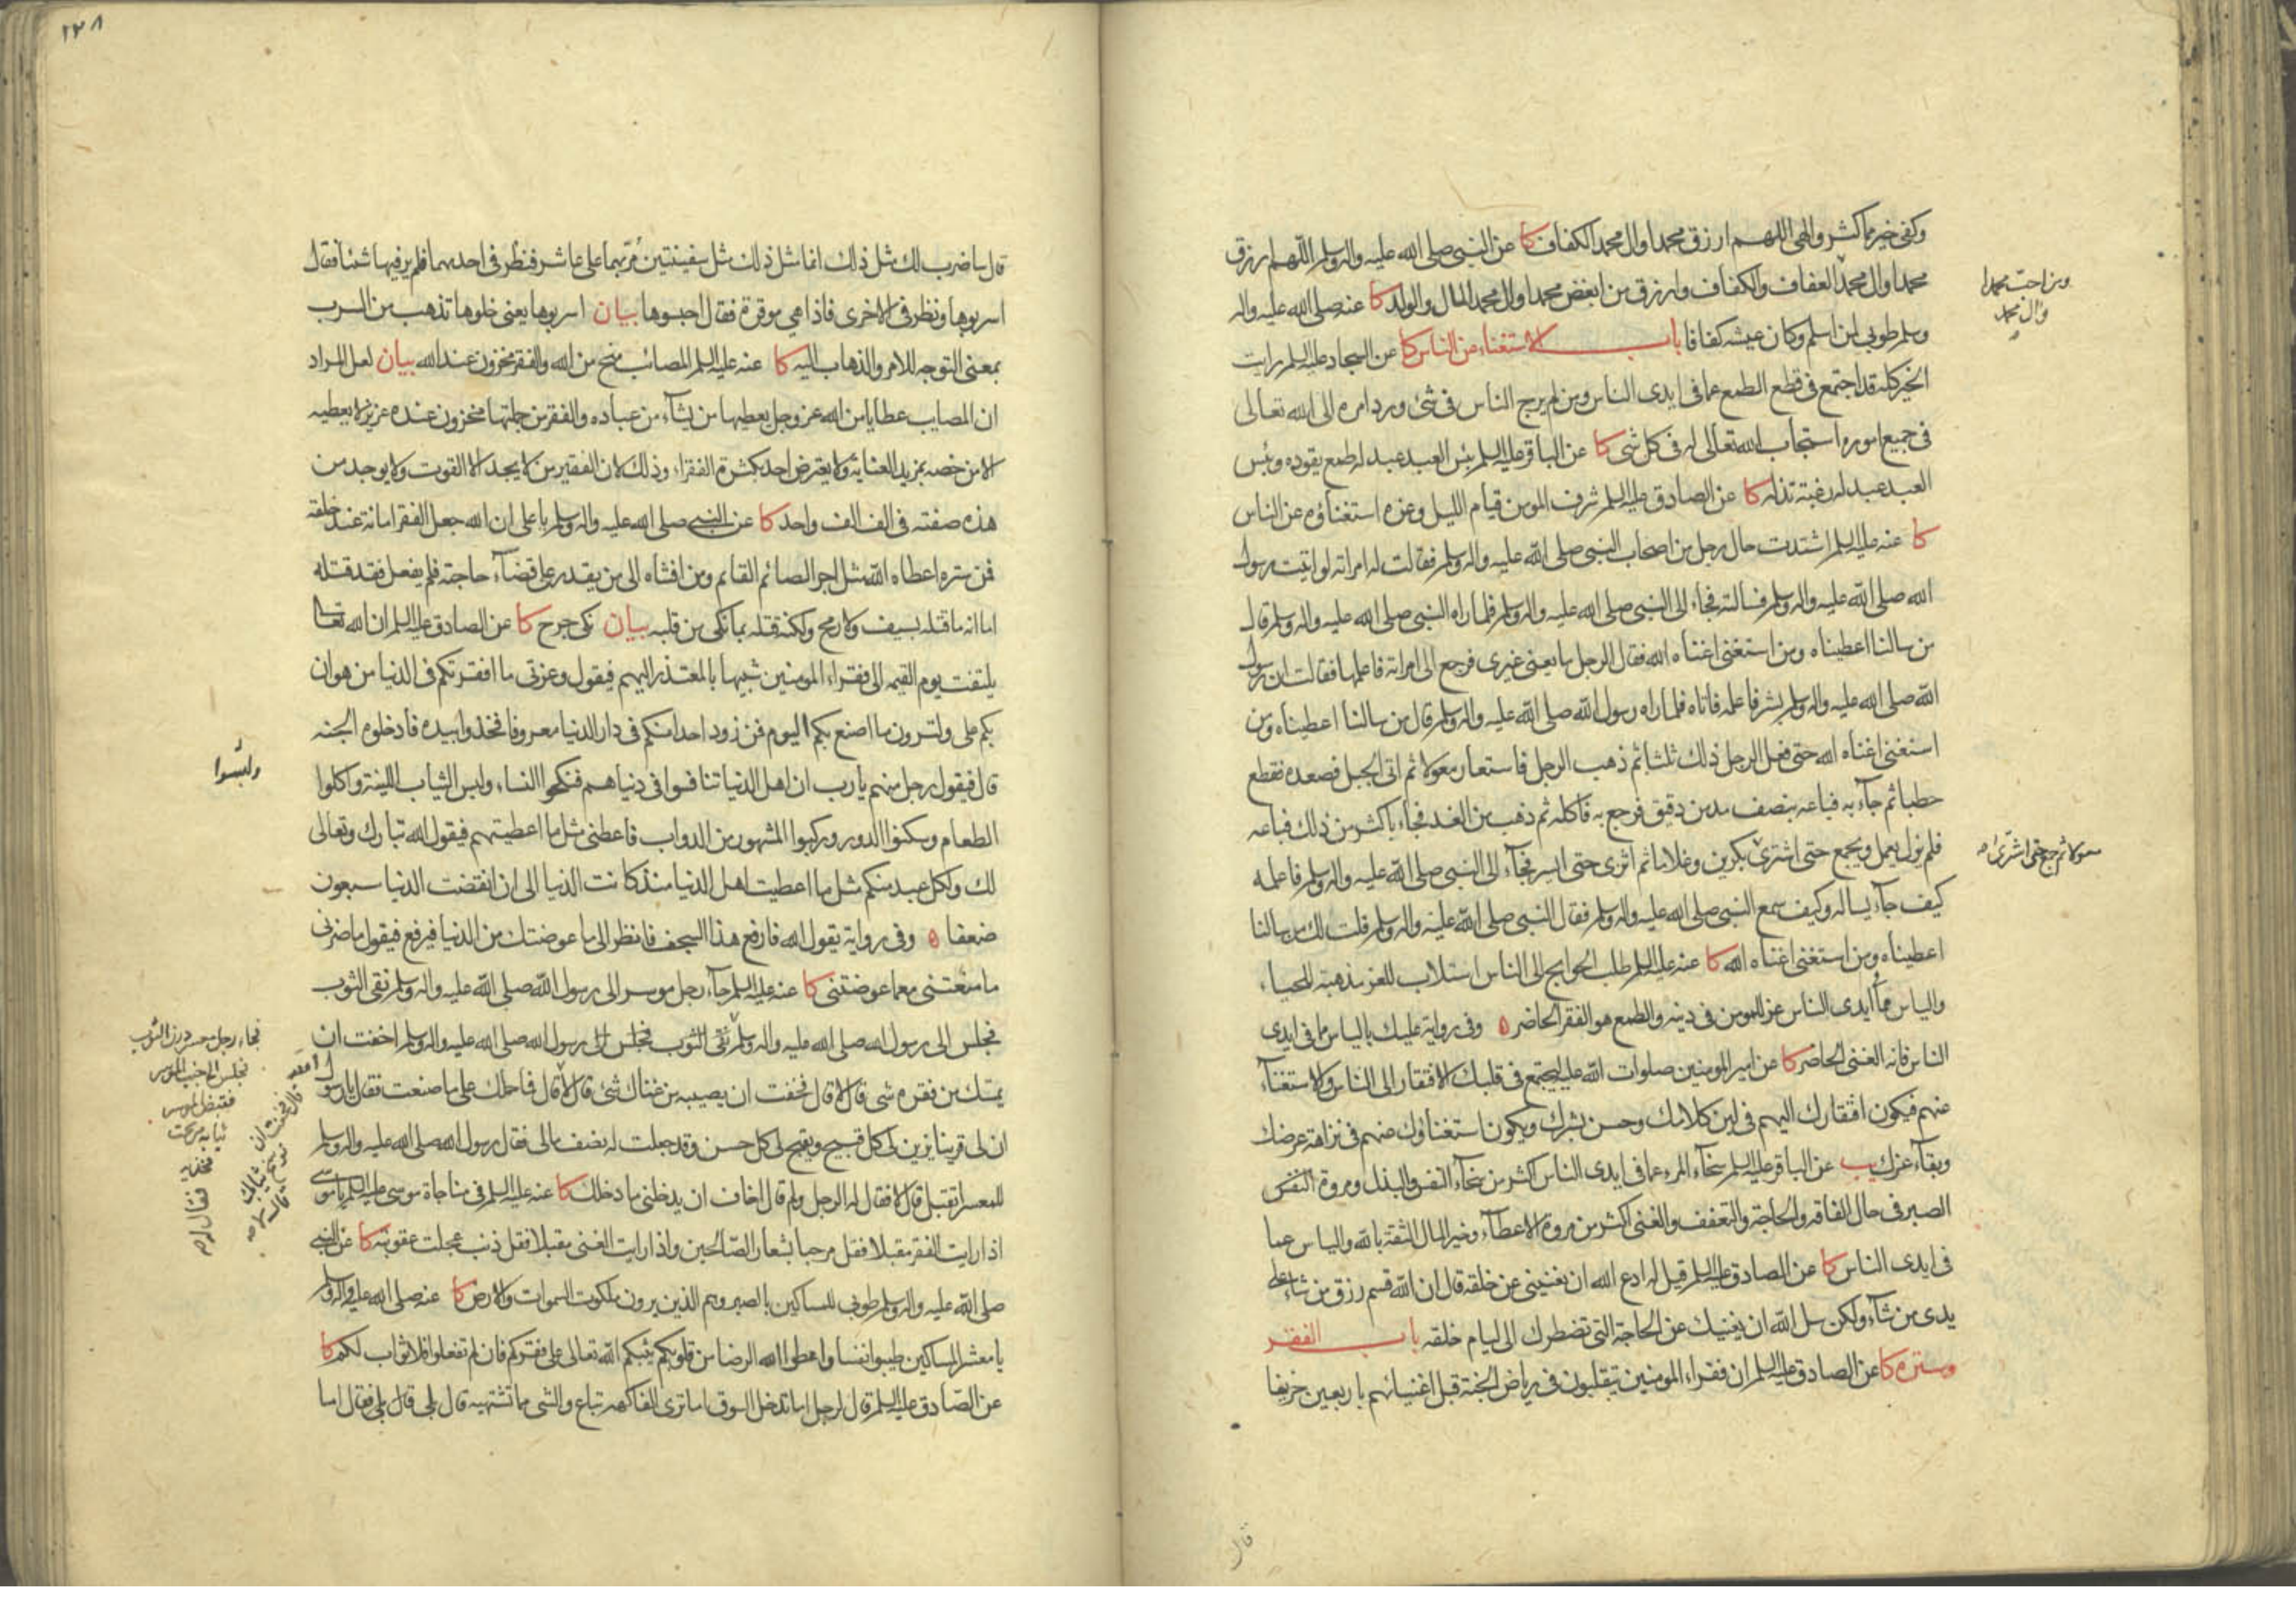 وكفى خير مما كثر والهى اللهم ارزق محمدا وال محمد الكفاف كا عن النبي صلى الله عليه واله وسلم اللهم ارزق
محمدا وال محمد العفاف والكفاف وارزق من ابغض محمدا وال محمد المال والولد كا عنه صلى الله عليه واله
ومن احب محمدا
وال محمد
وسلم طوبى لمن اسلم وكان عيشه كفافا باب الاستغناء عن الناس كا عن السجاد عليه السلم رايت
الخير كله قد اجتمع في قطع الطمع عما في ايدى الناس ومن لم يرج الناس في شئ ورد امره الى الله تعالى
في جميع اموره استجاب الله تعالى له في كل شئ كا عن الباقر عليه السلم بئس العبد عبد له طمع يقوده وبئس
العبد عبد له رغبة تذله كا عن الصادق عليه السلم شرف المومن قيام الليل وعزه استغناؤه عن الناس
كا عنه عليه السلم اشتدت حال رجل من اصحاب النبي صلى الله عليه واله وسلم فقالت له امراته لو اتيت رسول
الله صلى الله عليه واله وسلم فسالته فجاء الى النبي صلى الله عليه واله وسلم فلما راه النبي صلى الله عليه واله وسلم قال
من سالنا اعطيناه ومن استغنى اغناه الله فقال الرجل ما يعنى غيرى فرجع الى امراته فاعلمها فقالت ان رسول
الله صلى الله عليه واله وسلم بشر فاعلمه فاتاه فلما راه رسول الله صلى الله عليه واله وسلم قال من سالنا اعطيناه ومن
استغنى اغناه الله حتى فعل الرجل ذلك ثلثا ثم ذهب الرجل فاستعار معولا ثم اتى الجبل فصعده فقطع
حطبا ثم جاء به فباعه بنصف مد من دقيق فرجع به فاكله ثم ذهب من الغد فجاء باكثر من ذلك فباعه
فلم يزل يعمل ويجمع حتى اشترى بكرين وغلاما ثم اثرى حتى ايسر فجاء الى النبي صلى الله عليه واله وسلم فاعلمه
معولا ثم جمع حتى اشترى
كيف جاء يساله وكيف سمع النبي صلى الله عليه واله وسلم فقال النبي صلى الله عليه واله وسلم قلت لك من سالنا
اعطيناه ومن استغنى اغناه الله كا عنه عليه السلم طلب الحوايج الى الناس استلاب للعز مذهبة للحياء
والياس مما ايدى الناس عز للمومن في دينه والطمع هو الفقر الحاضر ه وفى رواية عليك بالياس مما في ايدى
الناس فانه الغنى الحاضر كا عن امير المومنين صلوات الله عليه ليجتمع في قلبك الافتقار الى الناس والاستغناء
عنهم فيكون افتقارك اليهم في لين كلامك وحسن بشرك ويكون استغناؤك عنهم في نزاهة عرضك
وبقاء عزك يب عن الباقر عليه السلم سخاء المرء عما في ايدى الناس اكثر من سخاء النفس والبذل ومروة النفس
الصبر في حال الفاقه والحاجة والتعفف والغنى اكثر من مروة الاعطاء وخير المال الثقة بالله والياس عما
في ايدى الناس كا عن الصادق عليه السلم قيل له ادع الله ان يغنينى عن خلقه قال ان الله قسم رزق من شاء على
يدى من شاء ولكن سل الله ان يغنيك عن الحاجة التي تضطرك الى ليام خلقه باب الفقر
وستره كا عن الصادق عليه السلم ان فقراء المومنين يتقلبون في رياض الجنة قبل اغنيائهم باربعين خريفا
قال
١٢٨
قال ساضرب لك مثل ذلك انما مثل ذلك مثل سفينتين مر بهما على عاشر فنظر في احديهما فلم ير فيها شئا فقال
اسربوها ونظر في الاخرى فاذا هي موقرة فقال احبسوها بيان اسربوها يعنى خلوها تذهب من السرب
بمعنى التوجه للامر والذهاب اليه كا عنه عليه السلم المصائب منح من الله والفقر مخزون عند الله بيان لعل المراد
ان المصايب عطايا من الله عز وجل يعطيها من يشاء من عباده والفقر من جملتها مخزون عنده عزيز لا يعطيه
الا من خصه بمزيد العناية ولا يعترض احد بكثرة الفقراء وذلك لان الفقير من لا يجد الا القوت ولا يوجد من
هذه صفته في الف الف واحد كا عن النبي صلى الله عليه واله وسلم يا على ان الله جعل الفقر امانة عند خلقه
فمن ستره اعطاه الله مثل اجر الصائم القائم ومن افشاه الى من يقدر على قضاء حاجته فلم يفعل فقد قتله
اما انه ما قتله بسيف ولا رمح ولكنه قتله بما نكى من قلبه بيان نكى جرح كا عن الصادق عليه السلم ان الله تعالى
يلتفت يوم القيمه الى فقراء المومنين شبيها بالمعتذر اليهم فيقول وعزتى ما افقرتكم في الدنيا من هوان
بكم على ولترون ما اصنع بكم اليوم فمن زود احدا منكم في دار الدنيا معروفا فخذوا بيده فادخلوه الجنه
قال فيقول رجل منهم يا رب ان اهل الدنيا تنافسوا في دنياهم فنكحوا النساء ولبس الثياب اللينة واكلوا
ولبسوا
الطعام وسكنوا الدور وركبوا المشهور من الدواب فاعطنى مثل ما اعطيتهم فيقول الله تبارك وتعالى
لك ولكل عبد منكم مثل ما اعطيت اهل الدنيا منذ كانت الدنيا الى ان انقضت الدنيا سبعون
ضعفا ه وفى رواية يقول الله فارفع هذا السجف فانظر الى ما عوضتك من الدنيا فيرفع فيقول ما ضرنى
ما منعتنى مع ما عوضتنى كا عنه عليه السلم جاء رجل موسر الى رسول الله صلى الله عليه واله وسلم نقى الثوب
فجلس الى رسول الله صلى الله عليه واله وسلم نقى الثوب فجلس الى رسول الله صلى الله عليه واله وسلم اخفت ان
فجاء رجل معسر درن الثوب
فجلس الى جنب الموسر
فقبض الموسر
ثيابه من تحت
فخذيه
فقال له ص
يمسك من فقره شئ قال لا قال فخفت ان يصيبه من غناك شئ قال لا قال فما حملك على ما صنعت فقال يا رسول الله
قال فخفت ان
يوسخ ثيابك
قال لا ص
ان لى قرينا يزين لى كل قبيح ويقبح لى كل حسن وقد جعلت له نصف مالى فقال رسول الله صلى الله عليه واله وسلم
للمعسر اتقبل قال لا فقال له الرجل ولم قال اخاف ان يدخلنى ما دخلك كا عنه عليه السلم في مناجاة موسى عليه السلم يا موسى
اذا رايت الفقر مقبلا فقل مرحبا بشعار الصالحين واذا رايت الغنى مقبلا فقل ذنب عجلت عقوبته كا عن النبي
صلى الله عليه واله وسلم طوبى للمساكين بالصبر وهم الذين يرون ملكوت السموات والارض كا عنه صلى الله عليه واله وسلم
يا معشر المساكين طيبوا نفسا واعطوا الله الرضا من قلوبكم يثبكم الله تعالى على فقركم فان لم تفعلوا فلا ثواب لكم كا
عن الصادق عليه السلم قال لرجل اما تدخل السوق اما ترى الفاكهه تباع والشئ مما تشتهيه قال بلى قال بلى فقال اما